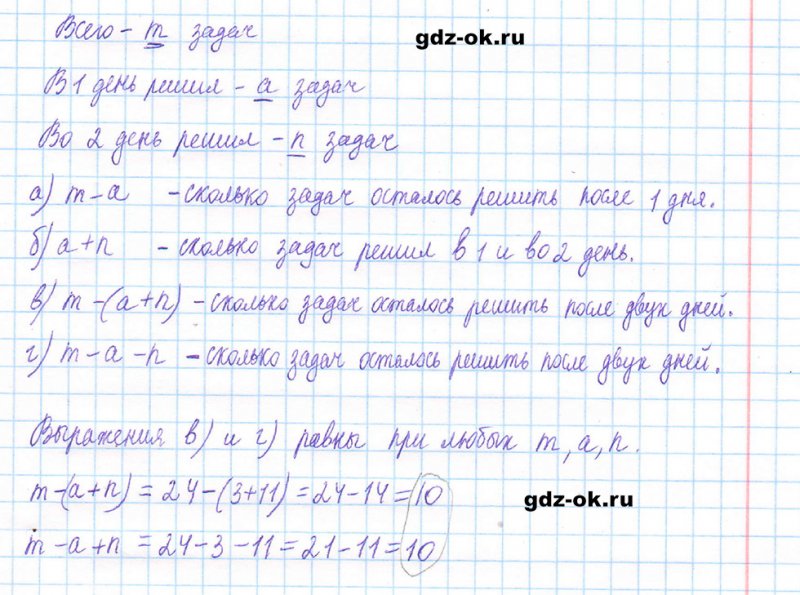 Всего - m задач
gdz-ok.ru
В 1 день решил - a задач
Во 2 день решил - n задач
а) m-a - сколько задач осталось решить после 1 дня.
б) a+n - сколько задач решил в 1 и во 2 день.
в) m-(a+n) - сколько задач осталось решить после двух дней.
г) m-a-n - сколько задач осталось решить после двух дней.
Выражения в) и г) равны при любых m, a, n.
m-(a+n) = 24-(3+11) = 24-14 = 10
gdz-ok.ru
m-a+n = 24-3-11 = 21-11 = 10